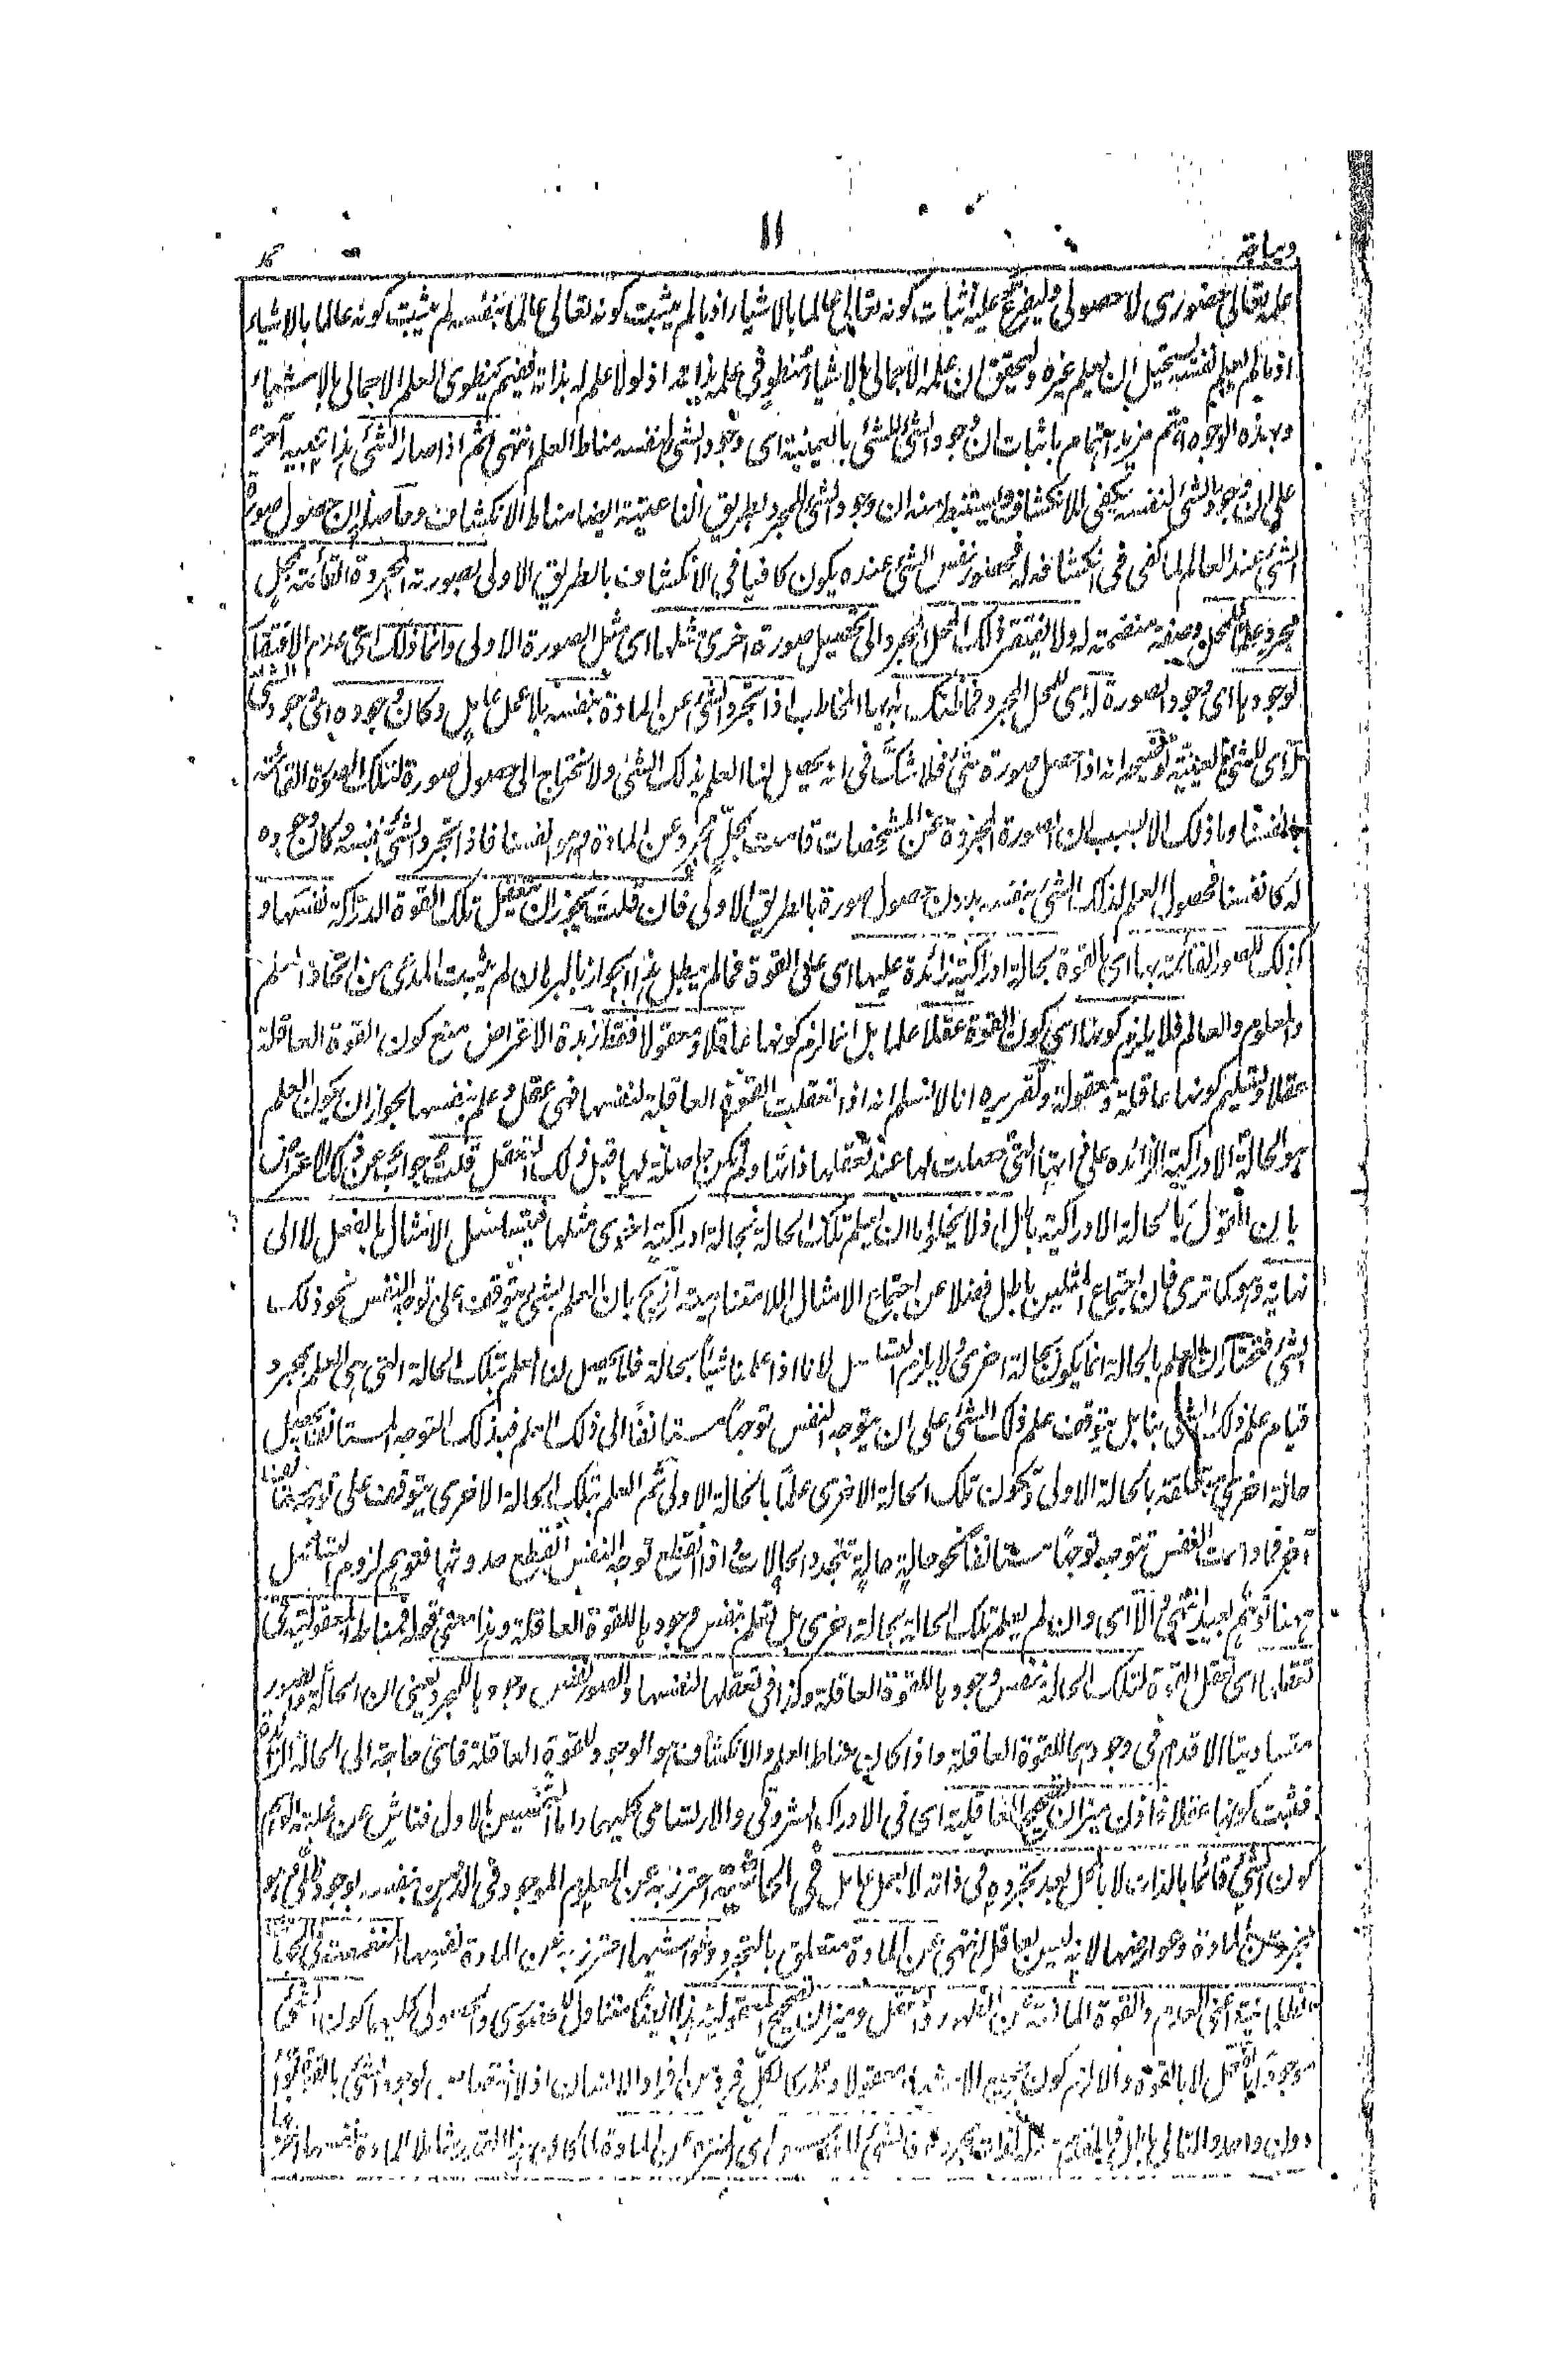 ديباچة
١١
علمه تعالى حضوري لا حصولي وليفرع عليه اثبات كونه تعالى عالما بالاشياء اذ ما لم يثبت كونه تعالى عالما بنفسه لم يثبت كونه عالما بالاشياء
اذ ما لم يعلم نفسه يستحيل ان يعلم غيره وليحقق ان علمه الاجمالي بالاشياء منطو في علمه بذاته اذ لولا علمه بذاته ففيم ينطوي العلم الاجمالي بالاشياء
وبهذه الوجوه اهتم مزيد اهتمام باثبات ان وجود الشئ للشئ بالعينية اى وجود الشئ لنفسه مناط العلم انتهى ثم اذا صار الشئ هذا
على ان وجود الشئ لنفسه يكفي للانكشاف يستنبط منه ان وجود الشئ للمجرد بطريق الناعتية ايضا مناط الانكشاف وحاصله ان حصول صورة
الشئ عند العالم لما كفى في انكشافه له فحضور نفس الشئ عنده يكون كافيا في الانكشاف بالطريق الاولى الصورة المجردة القائمة بمحل
مجرد علم للمحل وصفة منضمة له ولا يفتقر ذلك المحل المجرد الى تحصيل صورة اخرى مثلها اى مثل الصورة الاولى وانما ذلك اى عدم الافتقار
لوجودها اى وجود الصورة له اى للمحل المجرد فما ظنك ايها المخاطب اذا تجرد الشئ عن المادة بنفسه بلا عمل عامل وكان وجوده اى وجود الشئ
له اى للشئ بالعينية توضيحه انه اذا حصل صورة شئ فلا شك في انه يحصل لنا العلم بذلك الشئ ولا نحتاج الى حصول صورة لتلك الصورة القائمة
بانفسنا وما ذلك الا بسبب ان الصورة المجردة عن المشخصات قامت بمحل مجرد عن المادة وهو انفسنا فاذا تجرد الشئ بنفسه وكان وجوده
له كانفسنا فحصول العلم لذلك الشئ بنفسه بدون حصول صورة بالطريق الاولى فان قلت يجوز ان تعقل تلك القوة الدراكة نفسها و
كذلك للصور القائمة بها اى بالقوة بحالة ادراكية زائدة عليها اى على القوة فما لم يبطل هذا الجواز بالبرهان لم يثبت المدعى من اتحاد العلم
والمعلوم والعالم فلا يلزم كونها اى كون القوة عقلا علما بل انما لزم كونها عاقلا ومعقولا فقط زبدة الاعتراض منع كون القوة العاقلة
عقلا وتسليم كونها عاقلة ومعقولة وتقريره انا لا نسلم انه اذا تعقلت القوة العاقلة لنفسها فهي عقل وعلم بنفسها لجواز ان يكون العلم
هو الحالة الادراكية الزائدة على ذاتها التي حصلت لها عند تعقلها ذاتها ولم تكن حاصلة لها قبل ذلك التعقل قلت جواب عن ذلك الاعتراض
بان القول بالحالة الادراكية باطل اذ لا يخلو اما ان يعلم تلك الحالة بحالة ادراكية اخرى مثلها فيتسلسل الامثال بالفعل لا الى
نهاية وهو كما ترى فان اجتماع المثلين باطل فضلا عن اجتماع الامثال اللامتناهية ازيح بان العلم بشئ يتوقف على توجه النفس نحو ذلك
الشئ فنختار ان العلم بالحالة انما يكون بحالة اخرى ولا يلزم التسلسل لانا اذا علمنا شيئا بحالة فلا يحصل لنا العلم بتلك الحالة التي هي العلم بمجرد
قيام علم ذلك الشئ بنا بل يتوقف علم ذلك الشئ على ان يتوجه النفس توجها مستانفا الى ذلك العلم فبذلك التوجه المستانف يحصل
حالة اخرى متعلقة بالحالة الاولى وتكون تلك الحالة الاخرى علما بالحالة الاولى ثم العلم بتلك الحالة الاخرى يتوقف على توجه
آخر فما دامت النفس تتوجه توجها مستانفا نحو حالة حالة تتجدد الحالات واذا انقطع توجه النفس انقطع حدوثها فتوهم لزوم التسلسل
ههنا توهم بعيد انتهى والا اى وان لم يعلم تلك الحالة بحالة اخرى بل تعلم بنفس وجودها للقوة العاقلة وهذا معنى قوله فمناط المعقولية في
تعقلها اى تعقل القوة لتلك الحالة بنفس وجودها للقوة العاقلة وكذا في تعقلها لنفسها والصور نفس وجودها للمجرد يعني ان الحالة والصور
متساويتا الاقدام في وجودهما للقوة العاقلة واذا كان مناط العلم والانكشاف هو الوجود للقوة العاقلة فاي حاجة الى الحالة
فثبت كونها عقلا فاذن ميزان تصحيح العاقلية اى في الادراك الشروقي والارتسامي كليهما
كون الشئ قائما بالذات لا بالمحل بعد تجرده في ذاته لا بعمل عامل في الحاشية احترز به عن المعلوم الموجود في الذهن بنفسه
مجرد عن المادة وعوارضها لانه ليس بعاقل انتهى عن المادة متعلق بالتجرد وغواشيها احترز به عن المادة نفسها
والقوة المادية عن الظهور وميزان تصحيح المعقولية ايضا متناول للحضوري والحصولي كليهما كون الشئ
موجودا بالفعل لا بالقوة والا لزم كون جميع الاشياء معقولا ومدركا لكل فرد من افراد الانسان اذ لا اختصاص لوجود الشئ بالقوة
دون واحد والتالي باطل فالمقدم